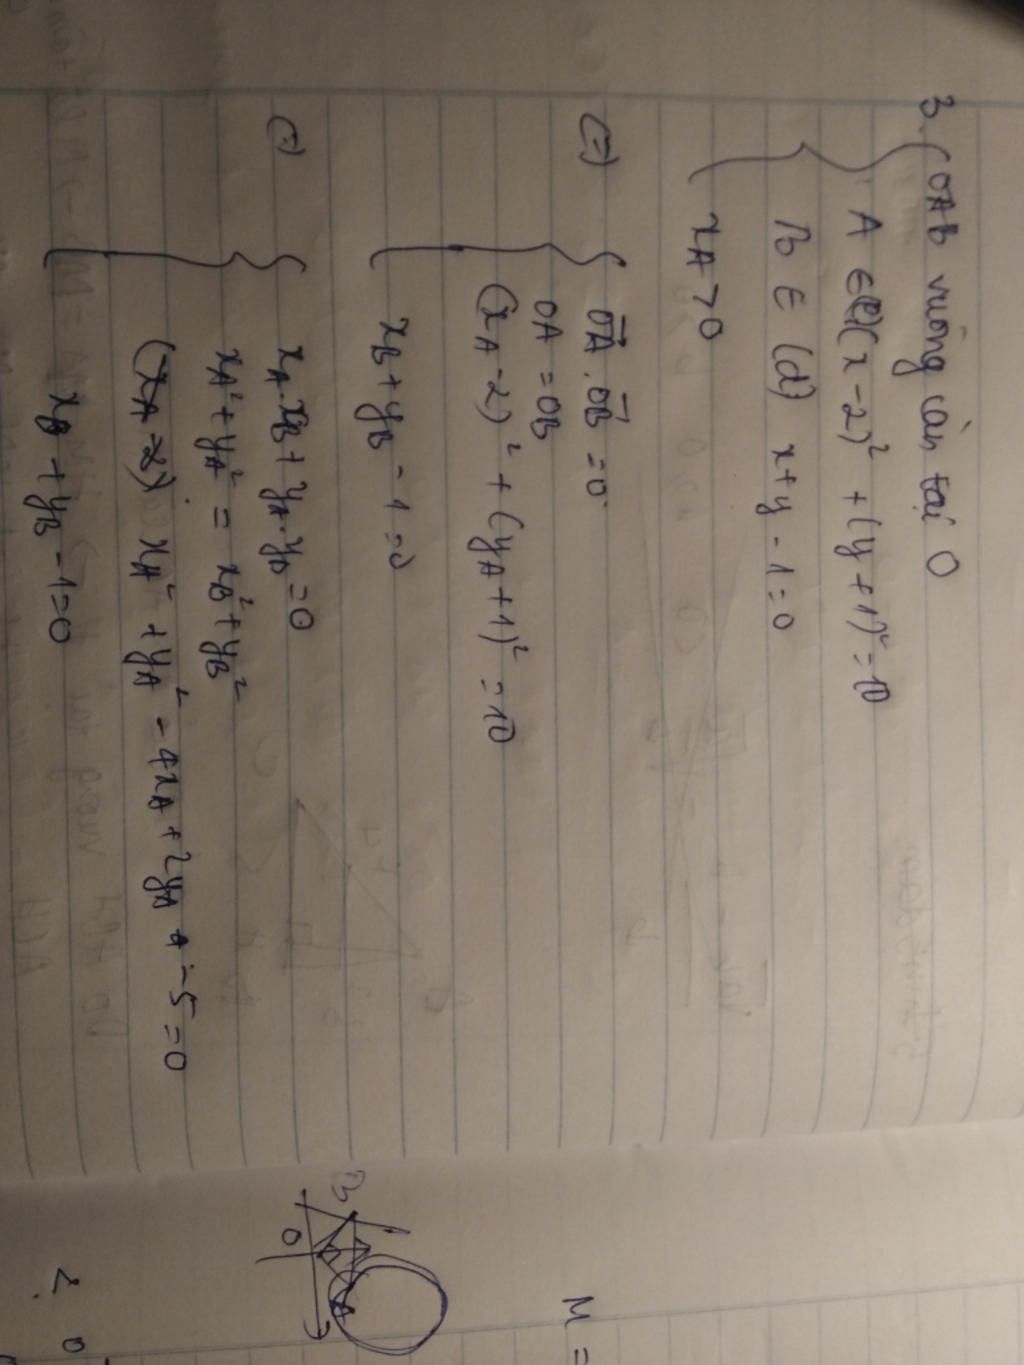 3. OAB vuông cân tại O
A ∈ (x - 2)² + (y + 1)² = 10
B ∈ (d) x + y - 1 = 0
x_A > 0
(=) OA⃗ . OB⃗ = 0
OA = OB
(x_A - 2)² + (y_A + 1)² = 10
x_B + y_B - 1 = 0
(=) x_A . x_B + y_A . y_B = 0
x_A² + y_A² = x_B² + y_B²
x_A² + y_A² - 4x_A + 2y_A - 5 = 0
x_B + y_B - 1 = 0
B
O
A
M =
2.